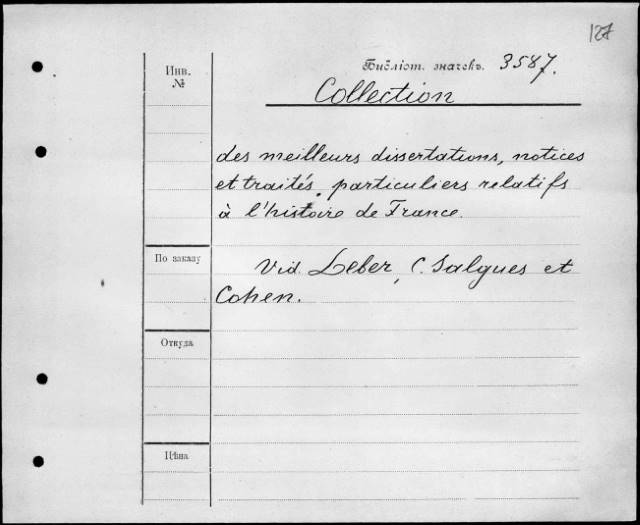 127
Инв.
№
Библіот. значекъ. 3587.
Collection
des meilleurs dissertations, notices
et traités particuliers relatifs
à l'histoire de France.
По заказу
Vid. Leber, C. Salgues et
Cohen.
Откуда
Цѣна